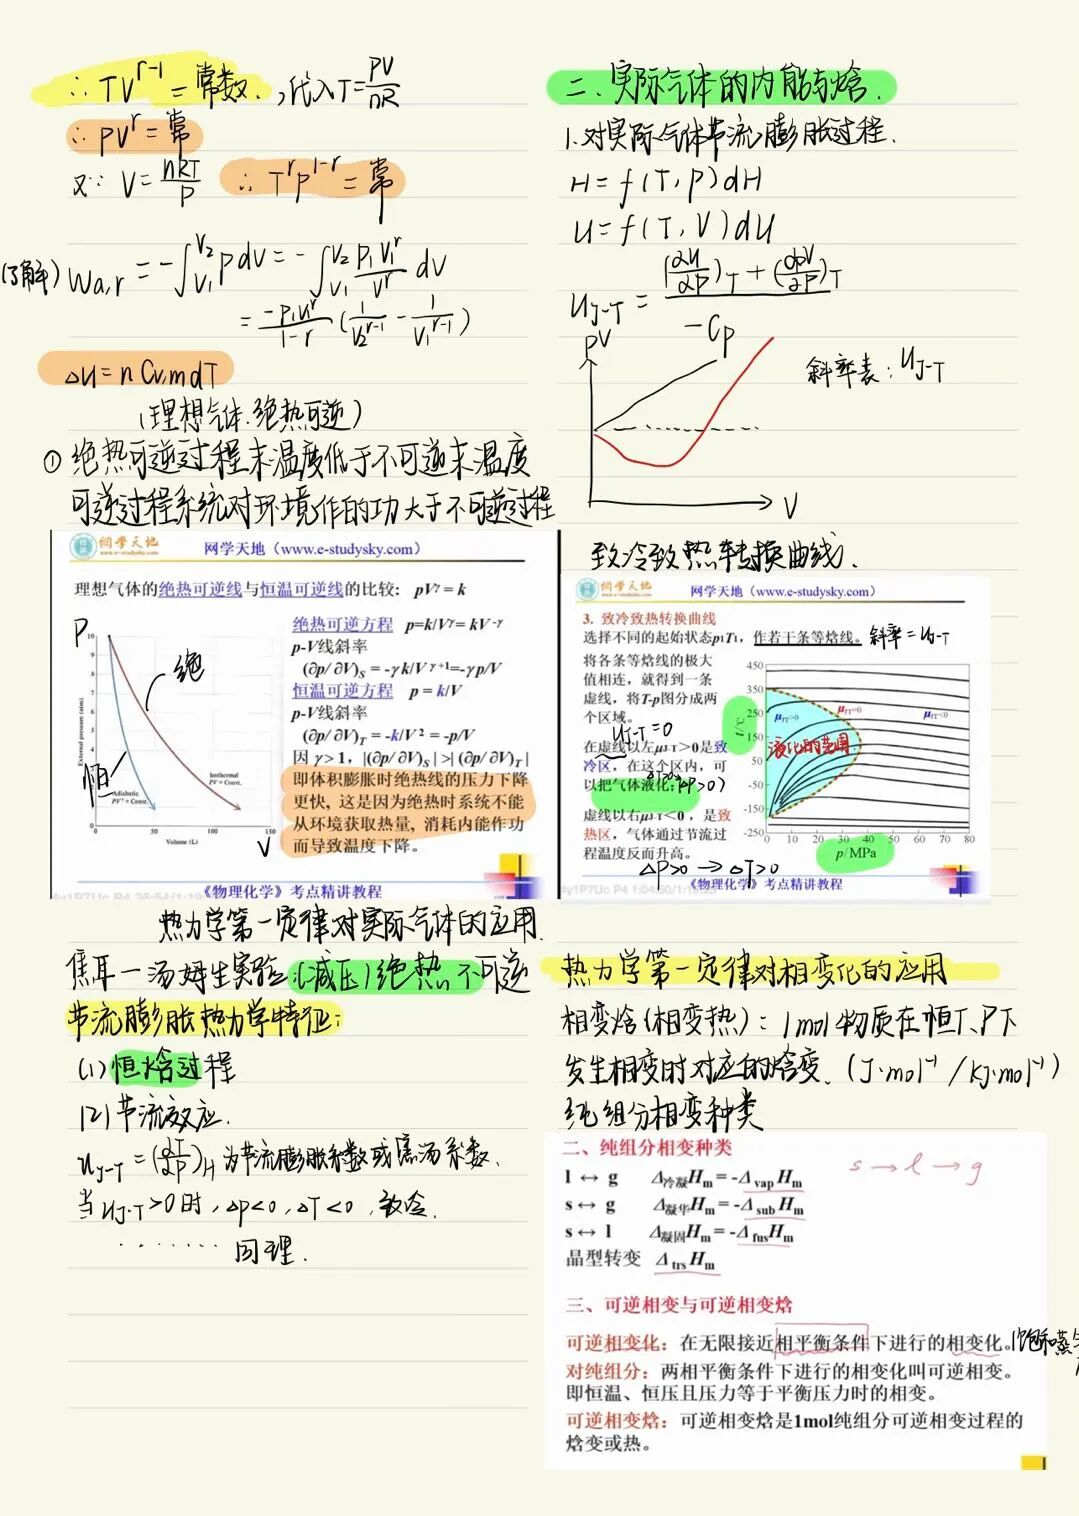 ∴ TV^{r-1} = 常数., 代入T=PV/nR
∴ PV^r = 常
又∵ V=nRT/P ∴ T^r P^{1-r} = 常
(了解) Wa,r = -∫_{V1}^{V2} p dV = -∫_{V1}^{V2} P1V1^r/V^r dV
= -P1V1^r/1-r (1/V2^{r-1} - 1/V1^{r-1})
ΔU = n CV,m dT
(理想气体.绝热可逆)
① 绝热可逆过程末温度低于不可逆末温度
可逆过程系统对环境作的功大于不可逆过程
網学天地 网学天地(www.e-studysky.com)
理想气体的绝热可逆线与恒温可逆线的比较: pVγ = k
P
绝
恒
External pressure (atm)
10
9
8
7
6
5
4
3
2
1
0
Isothermal
PV = Const.
Adiabatic
PVγ = Const.
0 50 100 150
Volume (L)
V
绝热可逆方程 p=k/Vγ= kV-γ
p-V线斜率
(∂p/∂V)S = -γk/Vγ+1=-γp/V
恒温可逆方程 p = k/V
p-V线斜率
(∂p/∂V)T = -k/V2 = -p/V
因 γ> 1, |(∂p/∂V)S| >| (∂p/∂V)T |
即体积膨胀时绝热线的压力下降
更快, 这是因为绝热时系统不能
从环境获取热量, 消耗内能作功
而导致温度下降。
《物理化学》考点精讲教程
热力学第一定律对实际气体的应用.
焦耳一汤姆生实验:(减压)绝热不可逆
节流膨胀热力学特征:
(1)恒焓过程
(2)节流效应.
uJ-T = (∂T/∂P)H 为节流膨胀系数或焦汤系数.
当uJ-T>0时, Δp<0, ΔT<0, 致冷.
········ 同理.
二. 实际气体的内能与焓.
1.对实际气体节流膨胀过程.
H = f(T, P) dH
U = f(T, V) dU
uJ-T = (∂U/∂P)T + (∂PV/∂P)T / -Cp
PV
V
斜率表: uJ-T
致冷致热转换曲线.
網学天地 网学天地(www.e-studysky.com)
3. 致冷致热转换曲线
选择不同的起始状态p1T1, 作若干条等焓线。 斜率=uJ-T
将各条等焓线的极大
值相连, 就得到一条
虚线, 将T-p图分成两
个区域。
uJ-T=0
在虚线以左μJ-T>0是致
冷区, 在这个区内, 可
以把气体液化;
虚线以右μJ-T<0, 是致
热区, 气体通过节流过
程温度反而升高。
ΔP>0 → ΔT>0
t/℃
450
350
250
150
50
-50
-150
-250
μJT>0 μJT=0 μJT<0
液化的范围
0 10 20 30 40 50 60 70 80
p/MPa
《物理化学》考点精讲教程
热力学第一定律对相变化的应用
相变焓(相变热): 1mol物质在恒T、P下
发生相变时对应的焓变. (J·mol^{-1} / KJ·mol^{-1})
纯组分相变种类
二、纯组分相变种类
s → l → g
l ↔ g Δ冷凝Hm = -Δvap Hm
s ↔ g Δ凝华Hm = -Δsub Hm
s ↔ l Δ凝固Hm = -ΔfusHm
晶型转变 Δtrs Hm
三、可逆相变与可逆相变焓
可逆相变化: 在无限接近相平衡条件下进行的相变化。
对纯组分: 两相平衡条件下进行的相变化叫可逆相变。
即恒温、恒压且压力等于平衡压力时的相变。
可逆相变焓: 可逆相变焓是1mol纯组分可逆相变过程的
焓变或热。